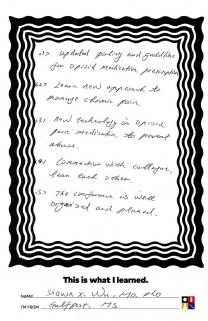 <1> updated policy and guideline
for opioid medication prescription
<2> Learn new approach to
manage chronic pain
<3> New technology in opioid
pain medication to prevent
abuse.
<4> Connection with colleague,
learn each other.
<5> The conference is well
organized and planned.
This is what I learned.
NAME Shawn X. Wu, MD, PhD
I'M FROM Gulfport, MS